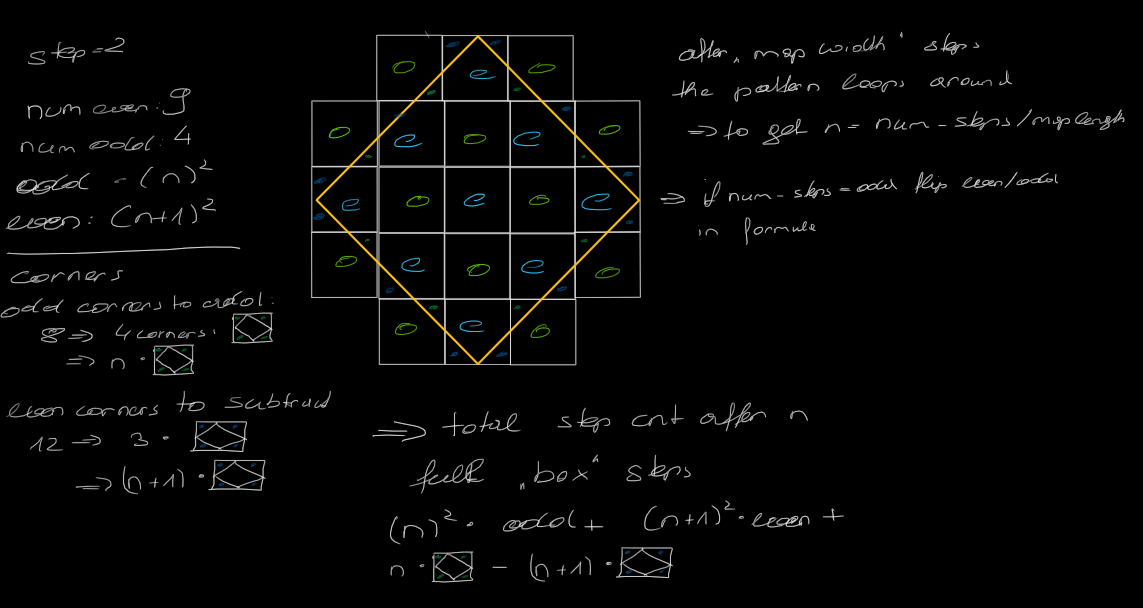 step=2
num even: 9
num odd: 4
odd = (n)²
even: (n+1)²
corners
odd corners to add:
8 => 4 corners:
=> n ·
even corners to subtract
12 => 3 ·
=> (n+1) ·
o e o
o e o e o
e o e o e
o e o e o
o e o
after „map width" steps
the pattern loops around
=> to get n = num-steps/maplength
=> if num-steps = odd flip even/odd
in formula
=> total step cnt after n
full „box" steps
(n)² · odd + (n+1)² · even +
n · - (n+1) ·